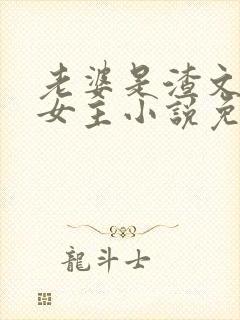 老婆是渣文
女主小説免
龍斗士